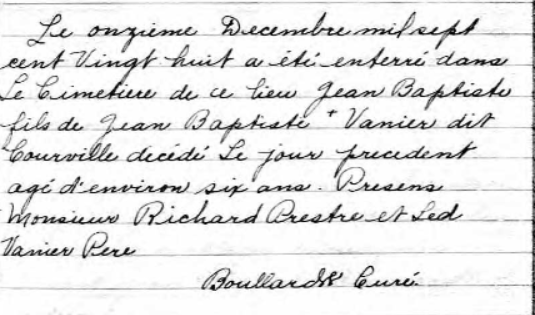 Le onzième Decembre mil sept
cent Vingt huit a été enterré dans
Le Cimetiere de ce lieu Jean Baptiste
fils de Jean Baptiste + Vanier dit
Courville décédé Le jour precedent
agé d'environ six ans. Presens
Monsieur Richard Prestre et Led
Vanier Pere
Boullard Curé.